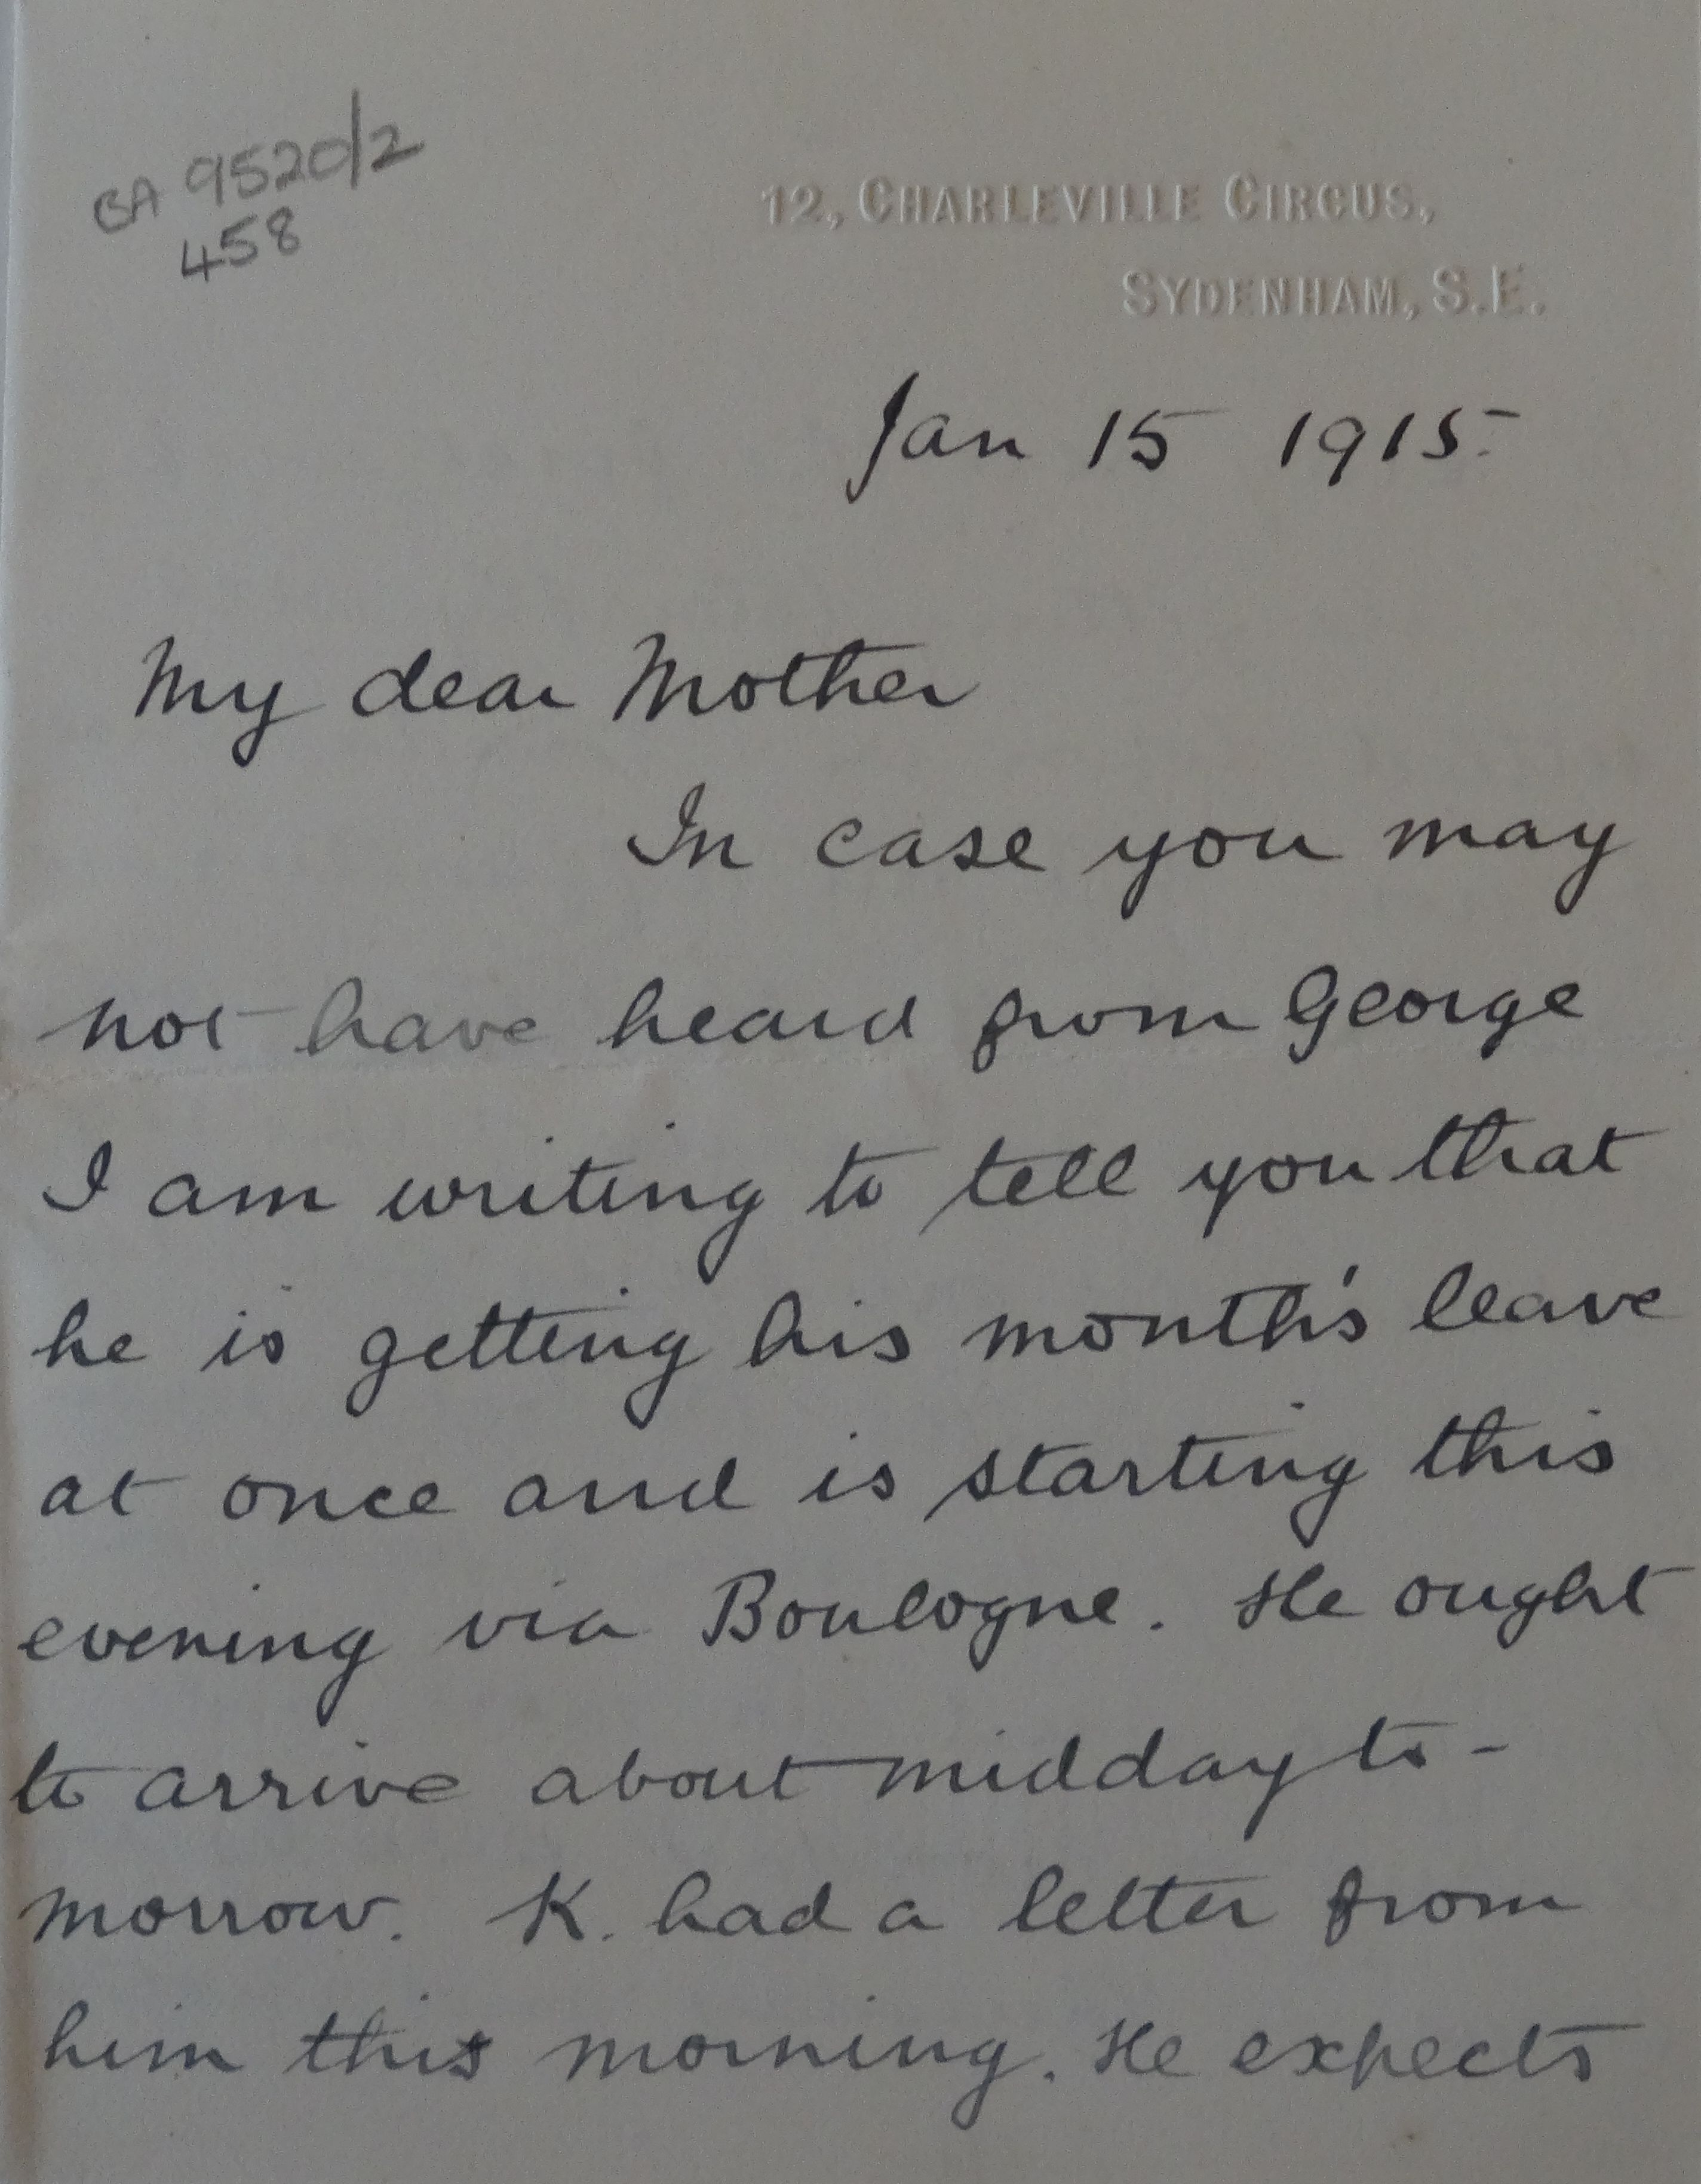 BA 9520/2
458
12, CHARLEVILLE CIRCUS,
SYDENHAM, S.E.
Jan 15 1915.
My dear Mother
In case you may
not have heard from George
I am writing to tell you that
he is getting his month's leave
at once and is starting this
evening via Boulogne. He ought
to arrive about midday to-
morrow. K. had a letter from
him this morning. He expects